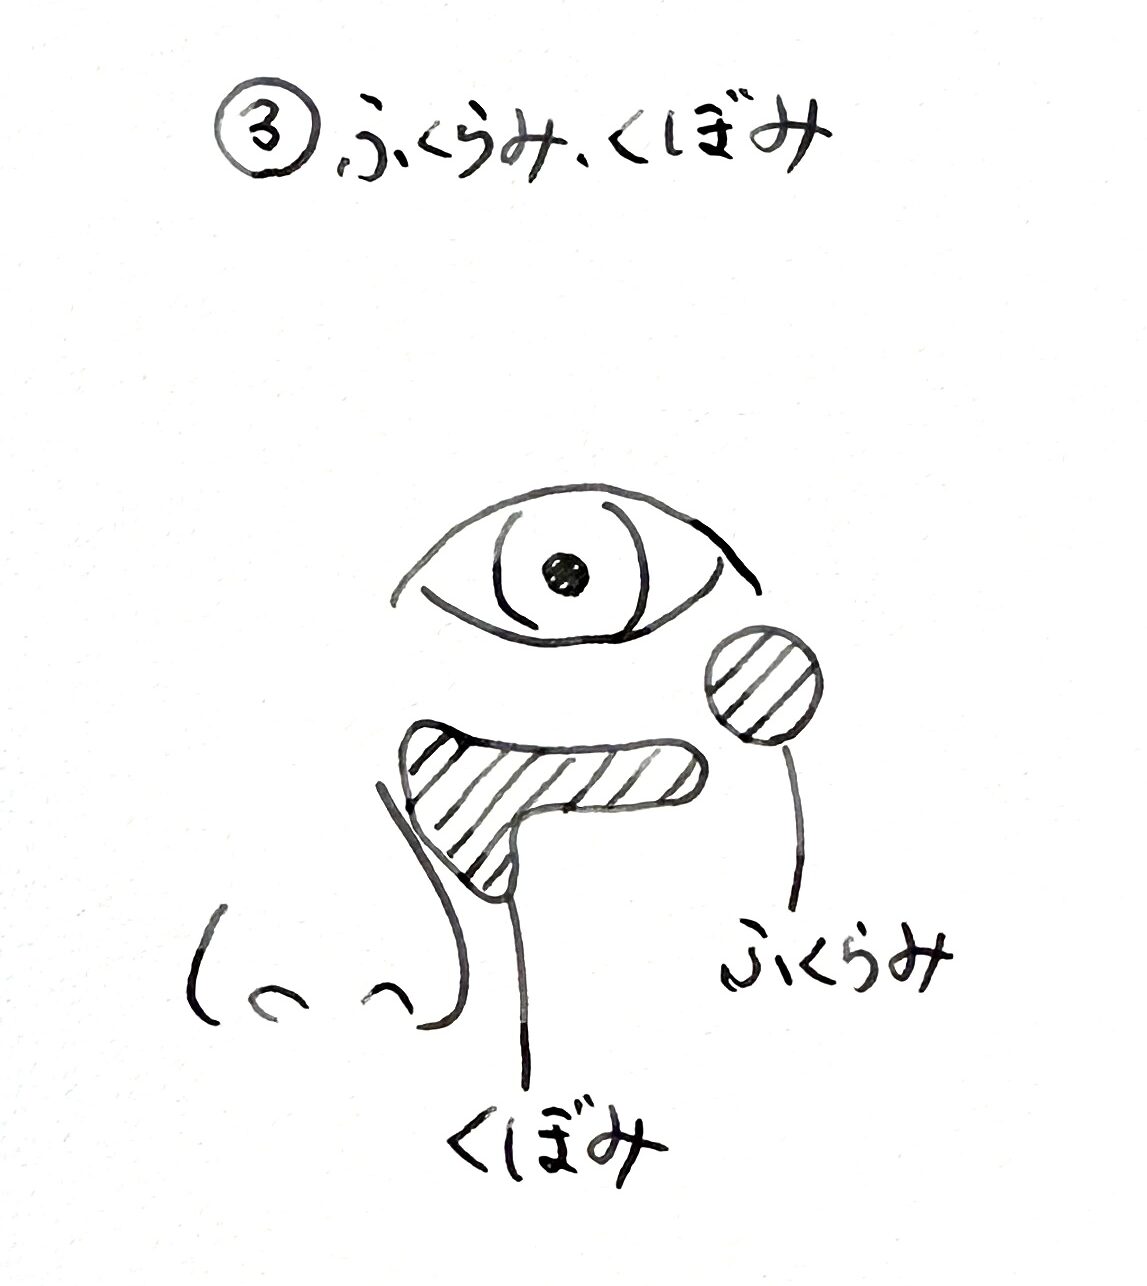 ③ふくらみ、くぼみ
ふくらみ
くぼみ